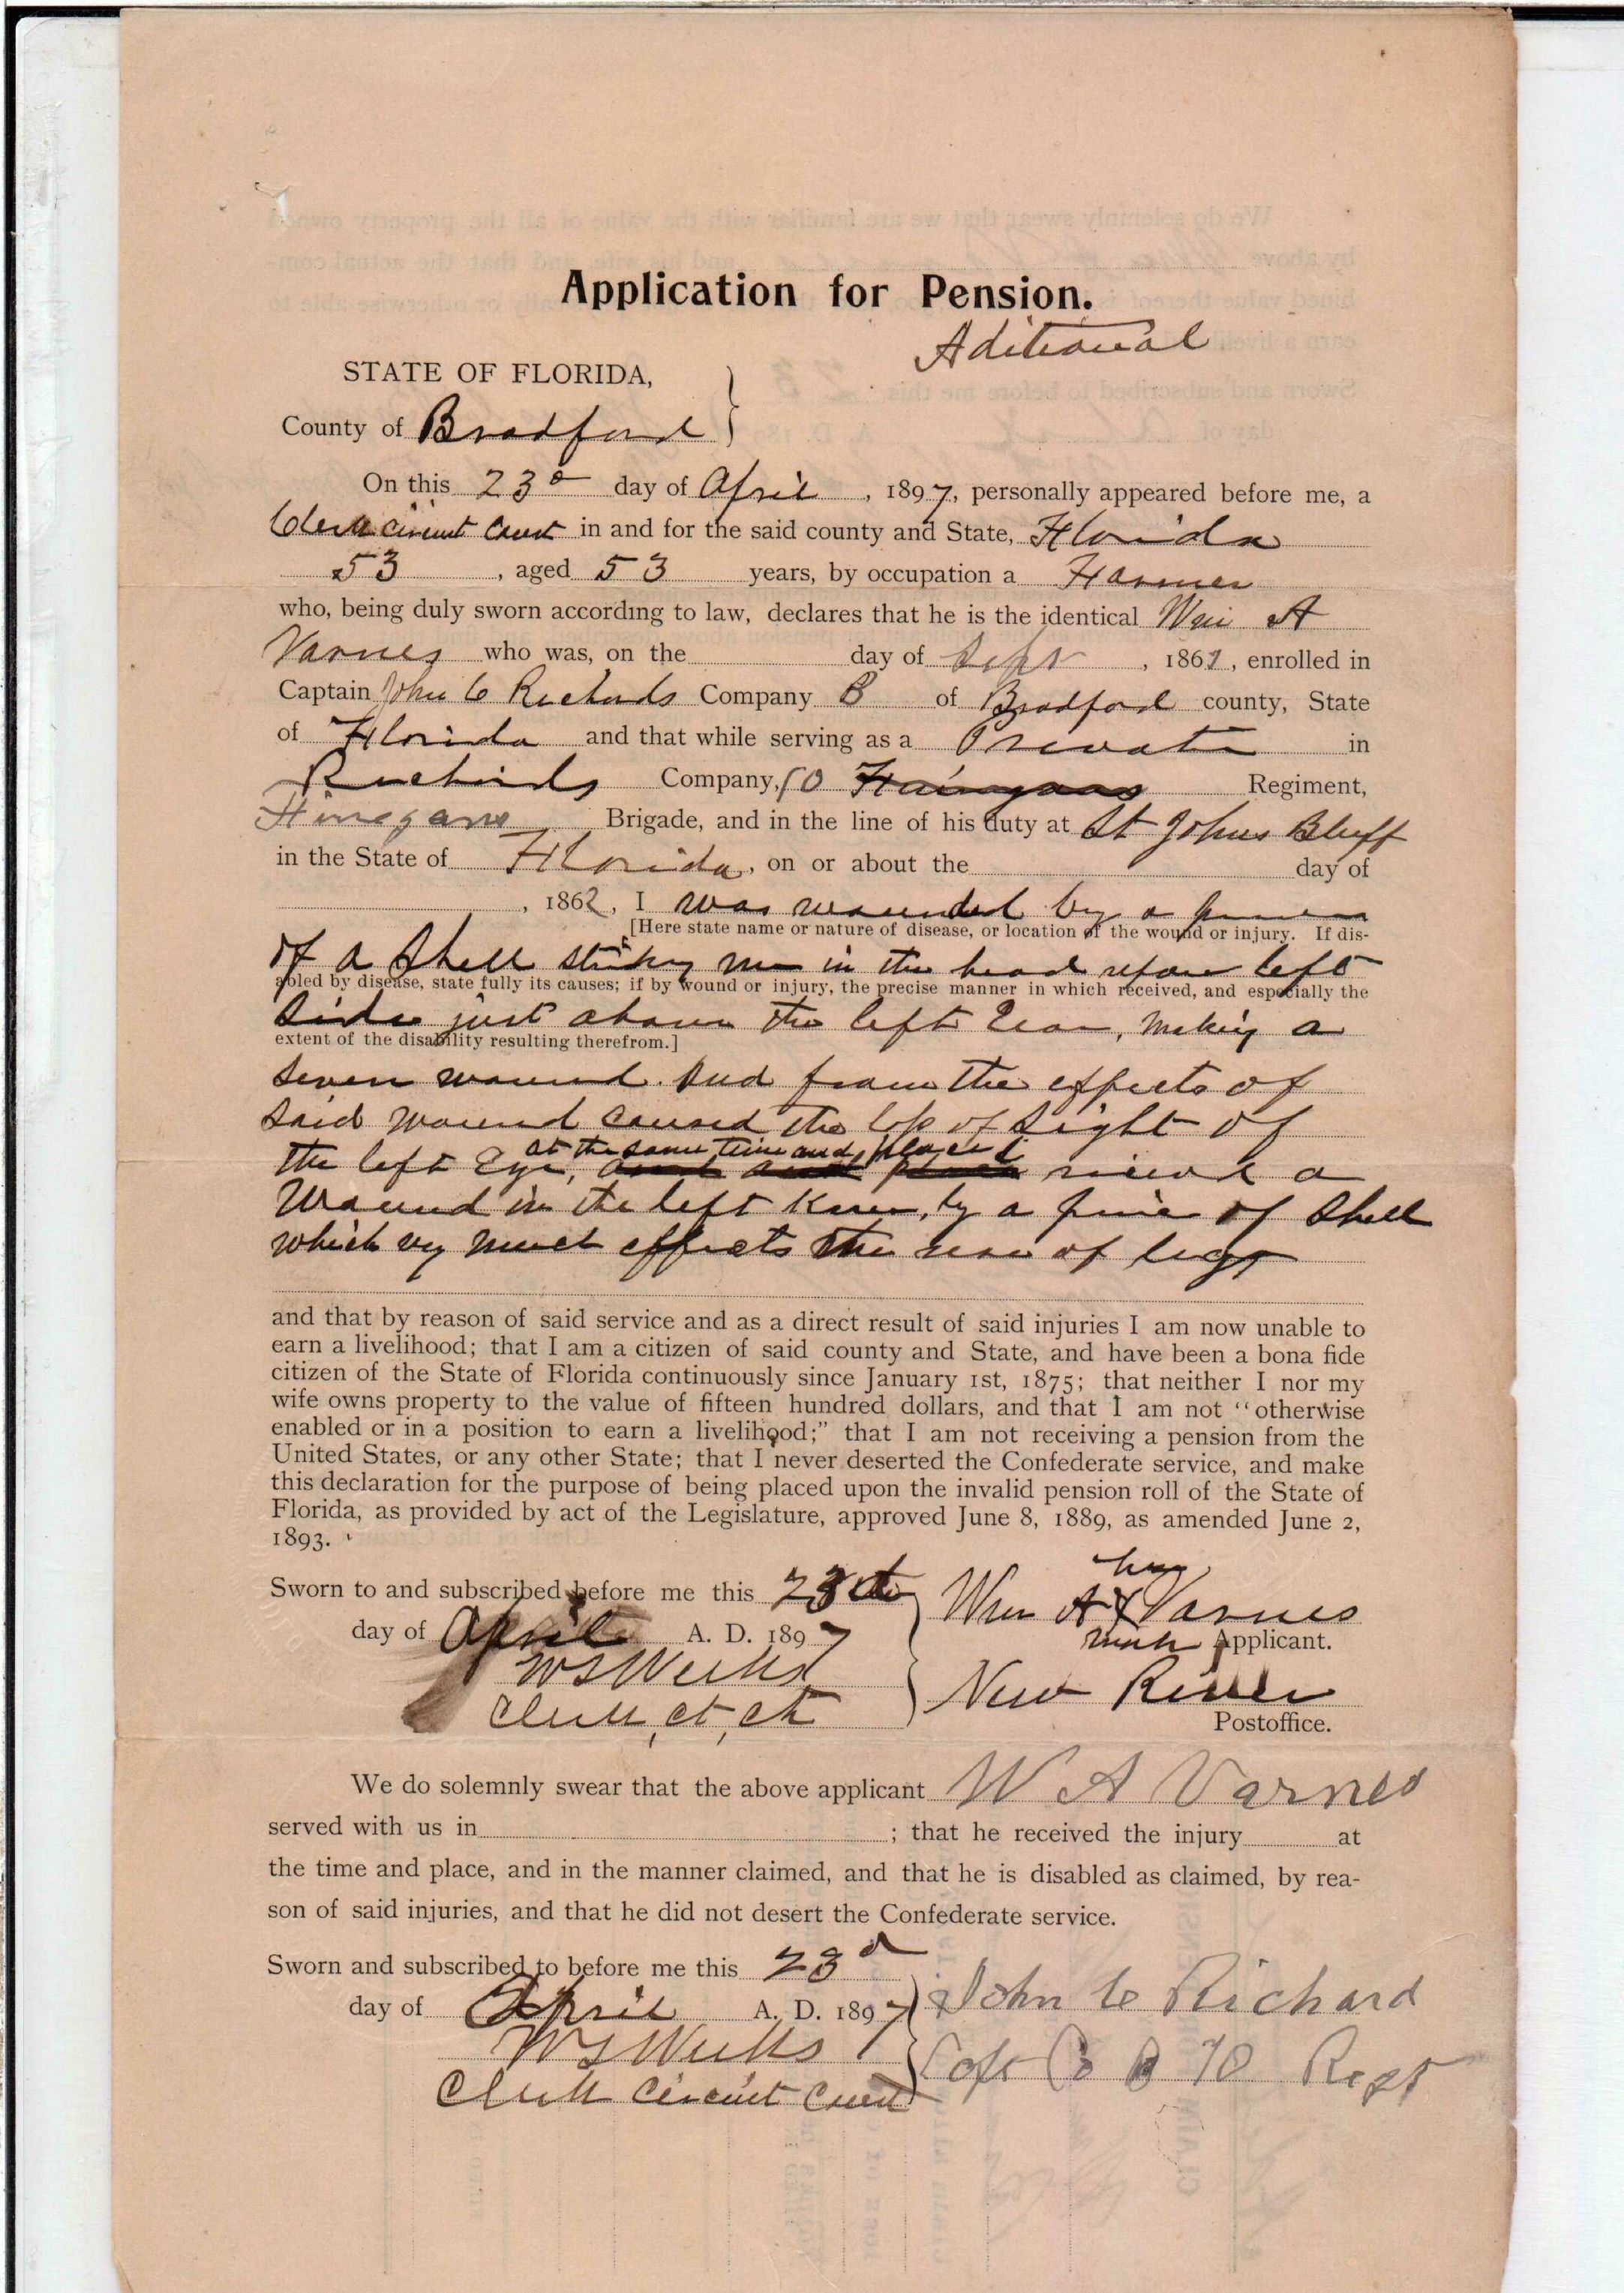 Application for Pension.
Aditional
STATE OF FLORIDA,
County of Bradford
On this 23d day of April, 1897, personally appeared before me, a
Clerk Circuit Court in and for the said county and State, Florida
53, aged 53 years, by occupation a Farmer
who, being duly sworn according to law, declares that he is the identical Wm A
Varnes who was, on the day of Sept, 1861, enrolled in
Captain John C Richards Company B of Bradford county, State
of Florida and that while serving as a Private in
Richards Company, 10 Regiment,
Finegans Brigade, and in the line of his duty at St Johns Bluff
in the State of Florida, on or about the day of
, 1862, I was wounded by a
[Here state name or nature of disease, or location of the wound or injury. If dis-
of a Shell striking me in the head left
abled by disease, state fully its causes; if by wound or injury, the precise manner in which received, and especially the
Side just above the left Ear, making a
extent of the disability resulting therefrom.]
wound. And from the effects of
said wound caused the loss of Sight of
at the same time and place I
the left Eye, a
Wound in the left Knee, by a piece of Shell
which vy much effects the use of legs
and that by reason of said service and as a direct result of said injuries I am now unable to
earn a livelihood; that I am a citizen of said county and State, and have been a bona fide
citizen of the State of Florida continuously since January 1st, 1875; that neither I nor my
wife owns property to the value of fifteen hundred dollars, and that I am not "otherwise
enabled or in a position to earn a livelihood;" that I am not receiving a pension from the
United States, or any other State; that I never deserted the Confederate service, and make
this declaration for the purpose of being placed upon the invalid pension roll of the State of
Florida, as provided by act of the Legislature, approved June 8, 1889, as amended June 2,
1893.
his
Sworn to and subscribed before me this 23d Wm A X Varnes
day of April A. D. 1897 mark Applicant.
W S Weeks New River
Clerk, Ct, Ct Postoffice.
We do solemnly swear that the above applicant W A Varnes
served with us in ; that he received the injury at
the time and place, and in the manner claimed, and that he is disabled as claimed, by rea-
son of said injuries, and that he did not desert the Confederate service.
Sworn and subscribed to before me this 23d
day of April A. D. 1897 John C Richard
W S Weeks Capt Co B 10 Regt
Clerk Circuit Court